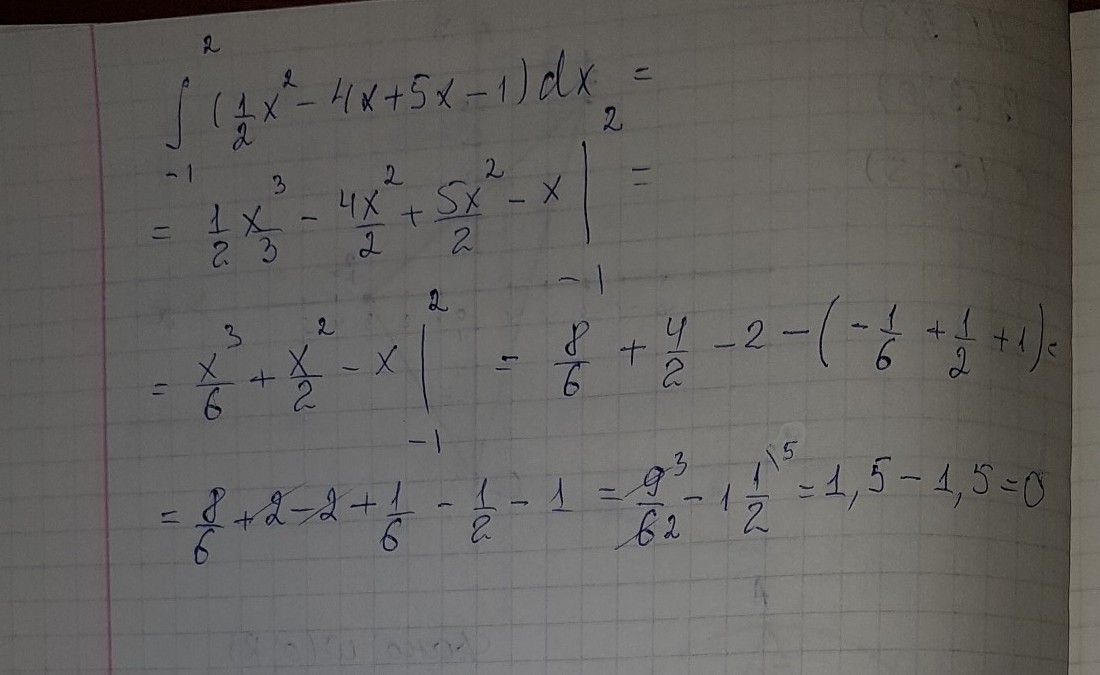 ∫_{-1}^{2} (1/2 x² - 4x + 5x - 1) dx =
= 1/2 x³/3 - 4x²/2 + 5x²/2 - x |_{-1}^{2} =
= x³/6 + x²/2 - x |_{-1}^{2} = 8/6 + 4/2 - 2 - (-1/6 + 1/2 + 1) =
= 8/6 + 2 - 2 + 1/6 - 1/2 - 1 = 9³/62 - 1 1/2 \5 = 1,5 - 1,5 = 0